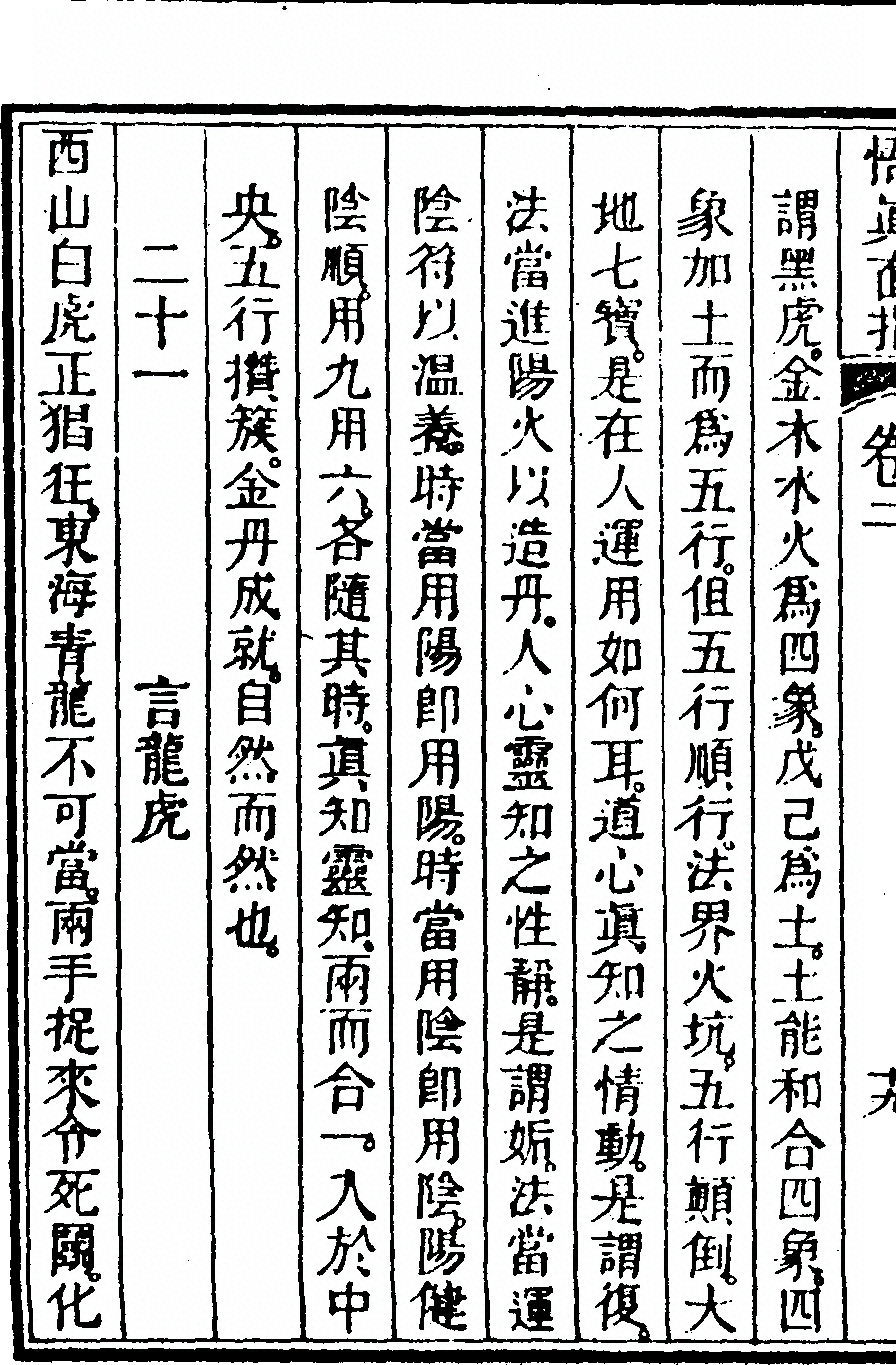 悟真直指 卷二
謂黑虎。金木水火爲四象。戊己爲土。土能和合四象。四
象加土而爲五行。但五行順行。法界火坑。五行顛倒。大
地七寶。是在人運用如何耳。道心眞知之情動。是謂復。
法當進陽火以造丹。人心靈知之性靜。是謂姤。法當運
陰符以温養。時當用陽卽用陽。時當用陰卽用陰。陽健
陰順。用九用六。各隨其時。眞知靈知、兩而合一。入於中
央。五行攢簇。金丹成就。自然而然也。
二十一 言龍虎
西山白虎正猖狂。東海青龍不可當。兩手捉來令死鬭。化